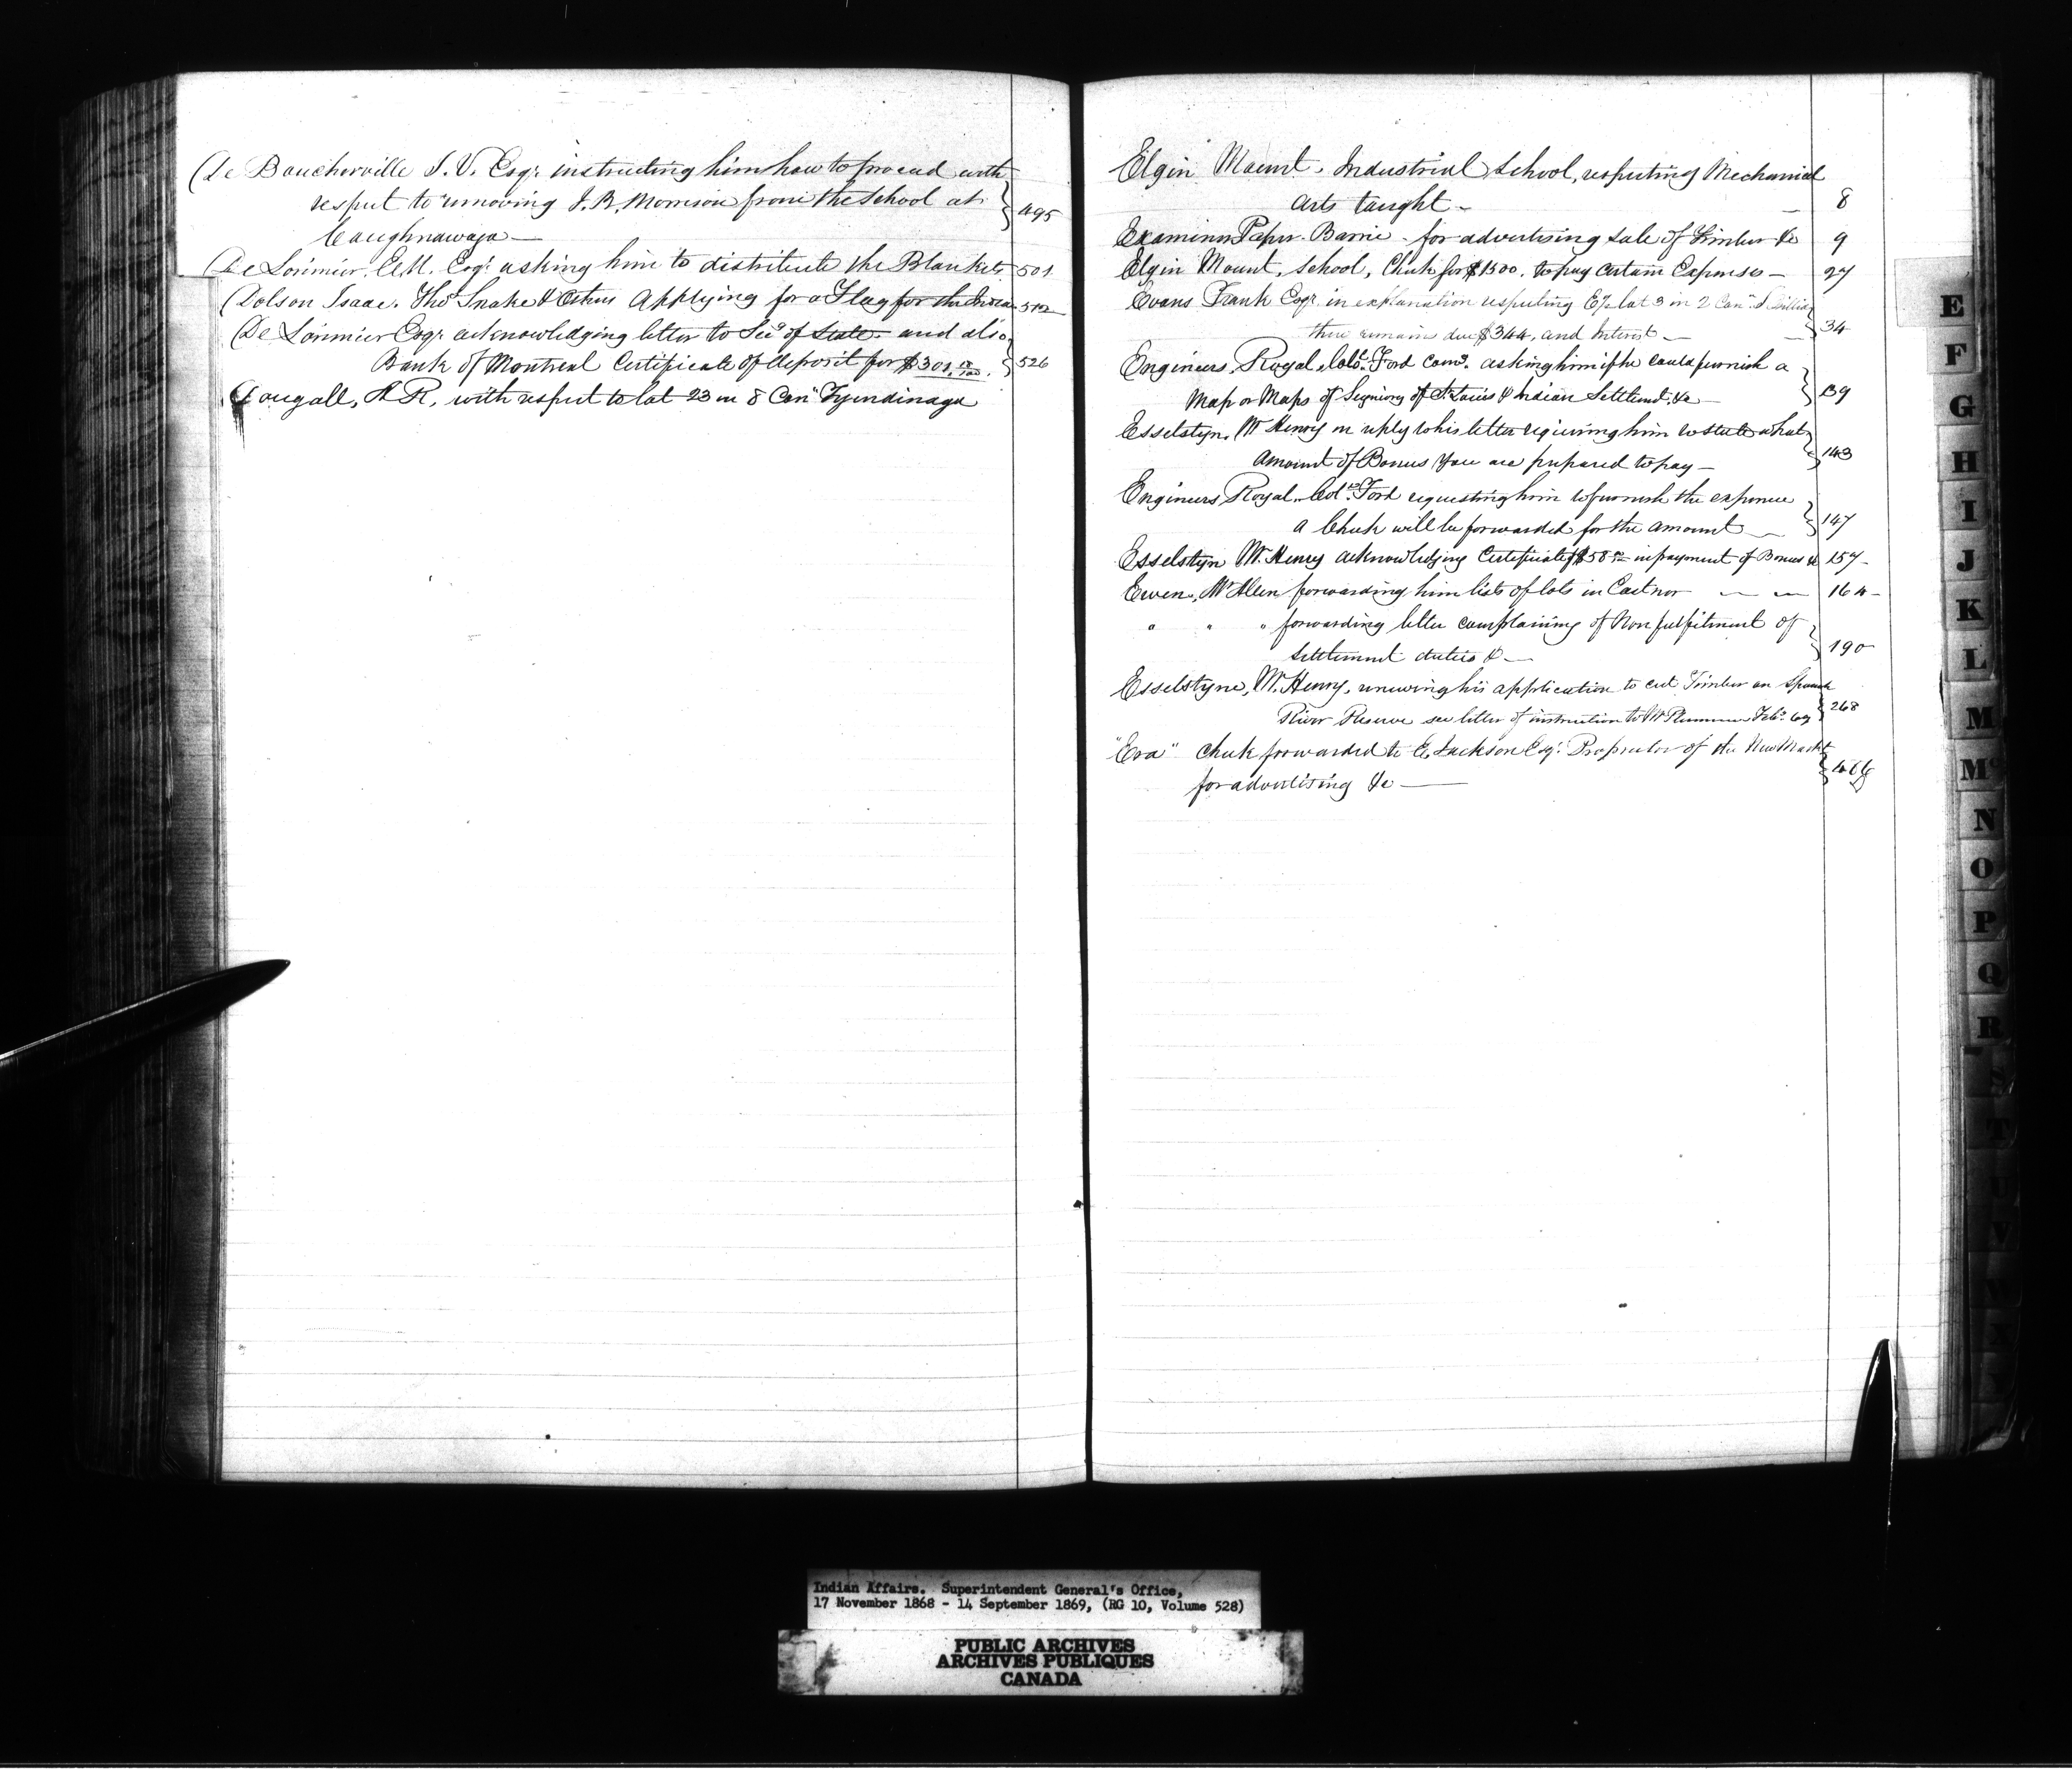 De Boucherville S. V. Esqr. instructing him how to proceed with
respect to removing J. B. Morrison from the School at
Caughnawaga — 495
De Lorimier. Esqr. asking him to distribute the Blankets 501
Dolson Isaac. Thos. Snake & Others Applying for a Flag for the Indian 512
De Lorimier Esqr. acknowledging letter to Secy of State and also
Bank of Montreal Certificate of deposit for $301. 526
Dougall, A R, with respect to lot 23 in 8 Con Tyendinaga
Elgin Mount. Industrial School, respecting Mechanical
arts taught — 8
Examiner Paper. Barrie - for advertising sale of Timber &c 9
Elgin Mount, School, Check for $1500. to pay certain Expenses — 27
Evans Frank Esqr. in explanation respecting E½ lot 3 in 2 Con. S.
there remain due $344, and Interest — 34
Engineers, Royal, Ford asking him if he could furnish a
Map or Maps of Seigniory of St. Louis & Indian Settlemt. &c — 139
Esselstyn, Mr Henry in reply to his letter requiring him to state what
Amount of Bonus you are prepared to pay — 143
Engineers, Royal, Ford requesting him to furnish the expence
a Check will be forwarded for the amount — 147
Esselstyn Mr. Henry acknowledging Certificate of $58 in payment of Bonus &c 157
Ewen, Mr Allen forwarding him lists of lots in Eastnor — 164
" " " forwarding letter complaining of Non fulfilment of
settlement duties &c — 190
Esselstyne, Mr. Henry, renewing his application to cut Timber on Spanish
River Reserve see letter of instruction to Mr Plummer Feby. 69 268
"Era" Check forwarded to E. Jackson Esqr. Proprietor of the New Markt
for advertising &c —
E
F
G
H
I
J
K
L
M
Mc
N
O
P
Q
R
S
T
U
V
W
Indian Affairs. Superintendent General's Office,
17 November 1868 - 14 September 1869, (RG 10, Volume 528)
PUBLIC ARCHIVES
ARCHIVES PUBLIQUES
CANADA